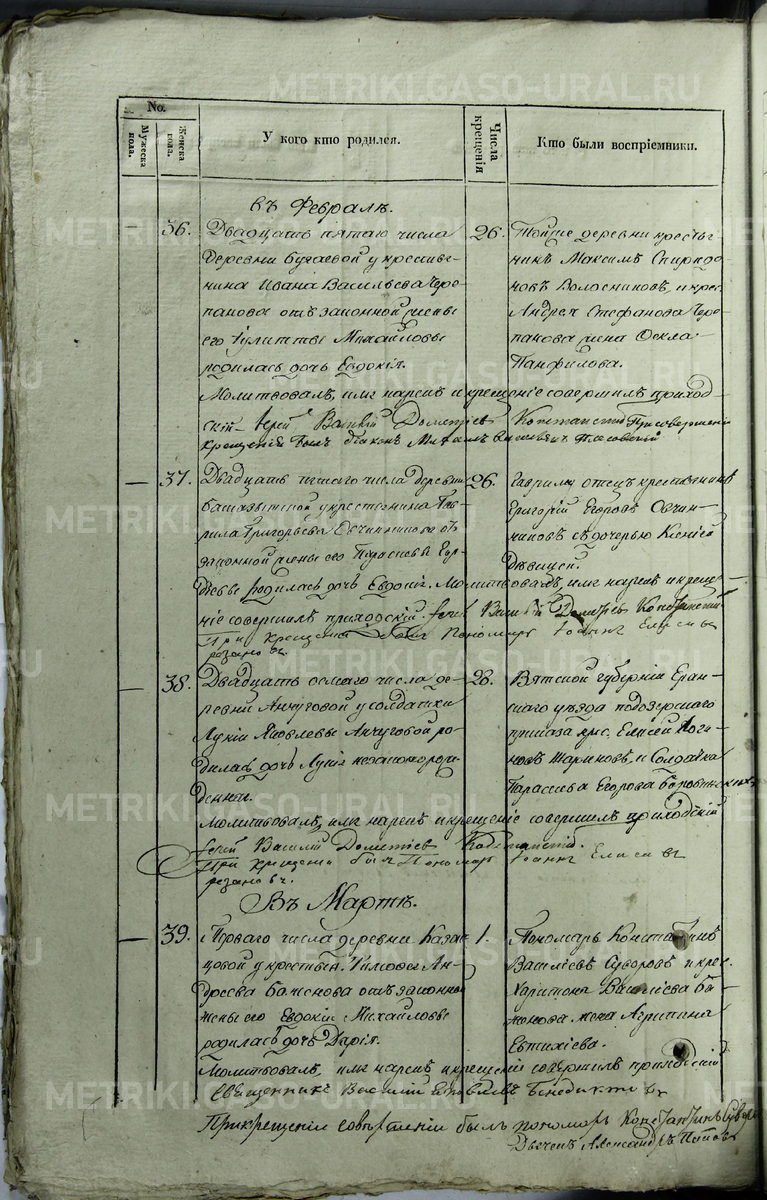 METRIKI.GASO-URAL.RU
No.
Мужеска пола.
Женска пола.
У кого кто родился.
Числа крещенія
Кто были воспріемники.
въ Февралѣ.
— 36. Двадцать пятаго числа
деревни у крестья-
нина Ивана Васильева Чере-
панова отъ законной жены
его Іулитты Михайловы
родилась дочь Евдокія.
26. Тойже деревни крестья-
нинъ Максимъ Спиридо-
новъ Волосниковъ, и крес.
Андрея Стефанова Чере-
панова жена Фекла
Панфилова.
Молитвовалъ, имя нарекъ и крещеніе совершилъ приход-
скій Іерей Василій Дометіевъ При совершеніи
крещенія былъ діаконъ
— 37. Двадцать числа деревни
у крестьянина Гав-
рила Григорьева Овчинникова отъ
законной жены его Параскевы
родилась дочь Евдокія. Молитвовалъ, имя нарекъ и креще-
26. Гаврилы отецъ крестьянинъ
Григорій Егоровъ Овчин-
никовъ съ дочерью Ксеніей
Дѣвицей.
ніе совершилъ приходскій Іерей Василій Дометіевъ
При крещеніи былъ Пономарь Іоаннъ Елисеевъ
— 38. Двадцать осмаго числа де-
ревни Анчуговой у солдатки
Лукіи Яковлевы Анчуговой ро-
дилась дочь незаконорож-
денная.
28. Вятской губерніи Еран-
скаго уѣзда
приказа крес. Елисей
новъ и Солдатка
Параскева Егорова
Молитвовалъ, имя нарекъ и крещеніе совершилъ приходскій
Іерей Василій Дометіевъ
При крещеніи былъ Пономарь Іоаннъ Елисеевъ
Въ Мартѣ.
— 39. Перваго числа деревни Казан-
цовой у крестьян. Тимофея Ан-
дреева Баженова отъ законной
жены его Евдокіи Михайловы
родилась дочь Дарія.
1. Пономарь Константинъ
Василіевъ Суворовъ и крес.
Харитона Василіева Ба-
женова жена Агрипина
Евтихіева.
Молитвовалъ, имя нарекъ и крещеніе совершилъ приходскій
Священникъ Василій
При крещеніи совершеніи былъ пономарь Константинъ
Александръ Поповъ